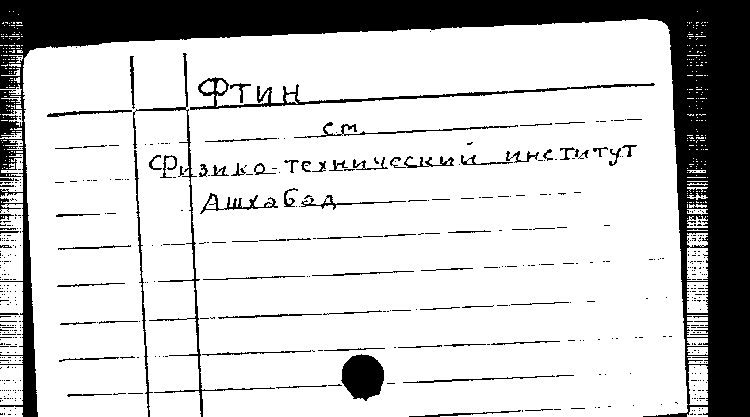 ФТИН
см.
Физико-технический институт
Ашхабад